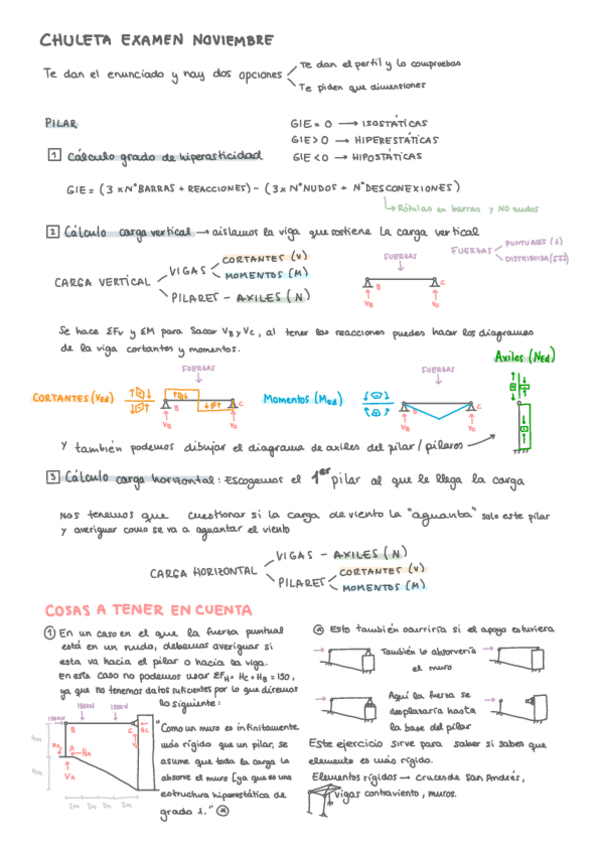 CHULETA EXAMEN NOVIEMBRE
Te dan el enunciado y hay dos opciones
Te dan el perfil y lo compruebas
Te piden que dimensiones
PILAR
GIE = 0 → ISOSTÁTICAS
GIE > 0 → HIPERESTÁTICAS
GIE < 0 → HIPOSTÁTICAS
1 Cálculo grado de hiperasticidad
GIE = (3 x Nº BARRAS + REACCIONES) - (3 x Nº NUDOS + Nº DESCONEXIONES)
Rótulas en barras y NO nudos
2 Cálculo carga vertical → aislamos la viga que sostiene la carga vertical
CARGA VERTICAL
VIGAS
CORTANTES (V)
MOMENTOS (M)
PILARES - AXILES (N)
FUERZAS
B
C
VB
VC
FUERZAS
PUNTUALES (↓)
DISTRIBUIDA
Se hace ΣFv y ΣM para sacar VB y VC, al tener las reacciones puedes hacer los diagramas
de la viga cortantes y momentos.
Axiles (NEd)
CORTANTES (VEd)
FUERZAS
B
C
VB
VC
Momentos (MEd)
FUERZAS
B
C
VB
VC
Y también podemos dibujar el diagrama de axiles del pilar / pilares
3 Cálculo carga horizontal: Escogemos el 1er pilar al que le llega la carga
Nos tenemos que cuestionar si la carga de viento la "aguanta" solo este pilar
y averiguar como se va a aguantar el viento
CARGA HORIZONTAL
VIGAS - AXILES (N)
PILARES
CORTANTES (V)
MOMENTOS (M)
COSAS A TENER EN CUENTA
1 En un caso en el que la fuerza puntual
está en un nudo, debemos averiguar si
esta va hacia el pilar o hacia la viga.
En este caso no podemos usar ΣFH = HC + HB = 150,
ya que no tenemos datos suficientes por lo que diremos
lo siguiente:
150kN
150kN
150kN
B
C
HC
A
HA
VA
4m
4m
2m 2m 2m 2m
"Como un muro es infinitamente
más rígido que un pilar, se
asume que toda la carga la
absorve el muro [ya que es una
estructura hiperestática de
grado 1." *
* Esto también ocurriría si el apoyo estuviera
También lo absorvería
el muro
Aquí la fuerza se
desplazaría hasta
la base del pilar
Este ejercicio sirve para saber si sabes que
elemento es más rígido.
Elementos rígidos → cruces de San Andrés,
vigas contraviento, muros.